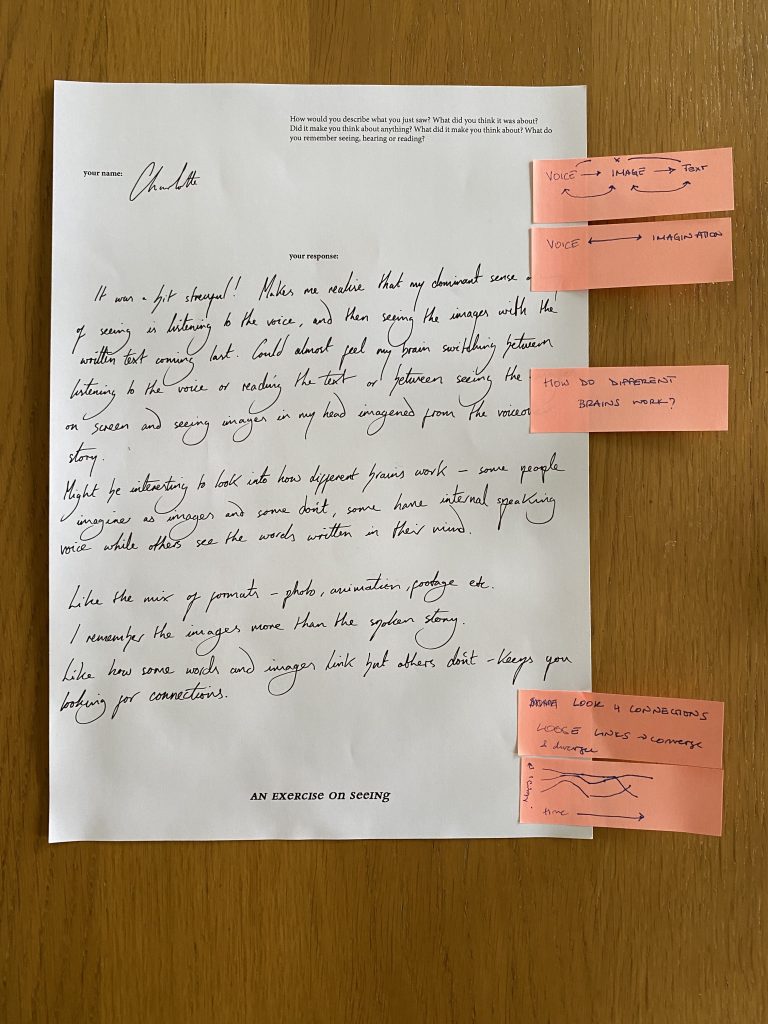 How would you describe what you just saw? What did you think it was about?
Did it make you think about anything? What did it make you think about? What do
you remember seeing, hearing or reading?
your name:
Charlotte
VOICE → IMAGE → TEXT
VOICE ↔ IMAGINATION
your response:
It was a bit stressful! Makes me realise that my dominant sense
of seeing is listening to the voice, and then seeing the images with the
written text coming last. Could almost feel my brain switching between
listening to the voice or reading the text or between seeing the
on screen and seeing images in my head imagened from the voiceov
story.
HOW DO DIFFERENT
BRAINS WORK?
Might be interesting to look into how different brains work - some people
imagine as images and some don't, some have internal speaking
voice while others see the words written in their mind.
Like the mix of formats - photo, animation, footage etc.
I remember the images more than the spoken story.
Like how some words and images link but others don't - keeps you
looking for connections.
LOOK 4 CONNECTIONS
LOOSE LINKS → converge
& diverge
time →
AN EXERCISE ON SEEING